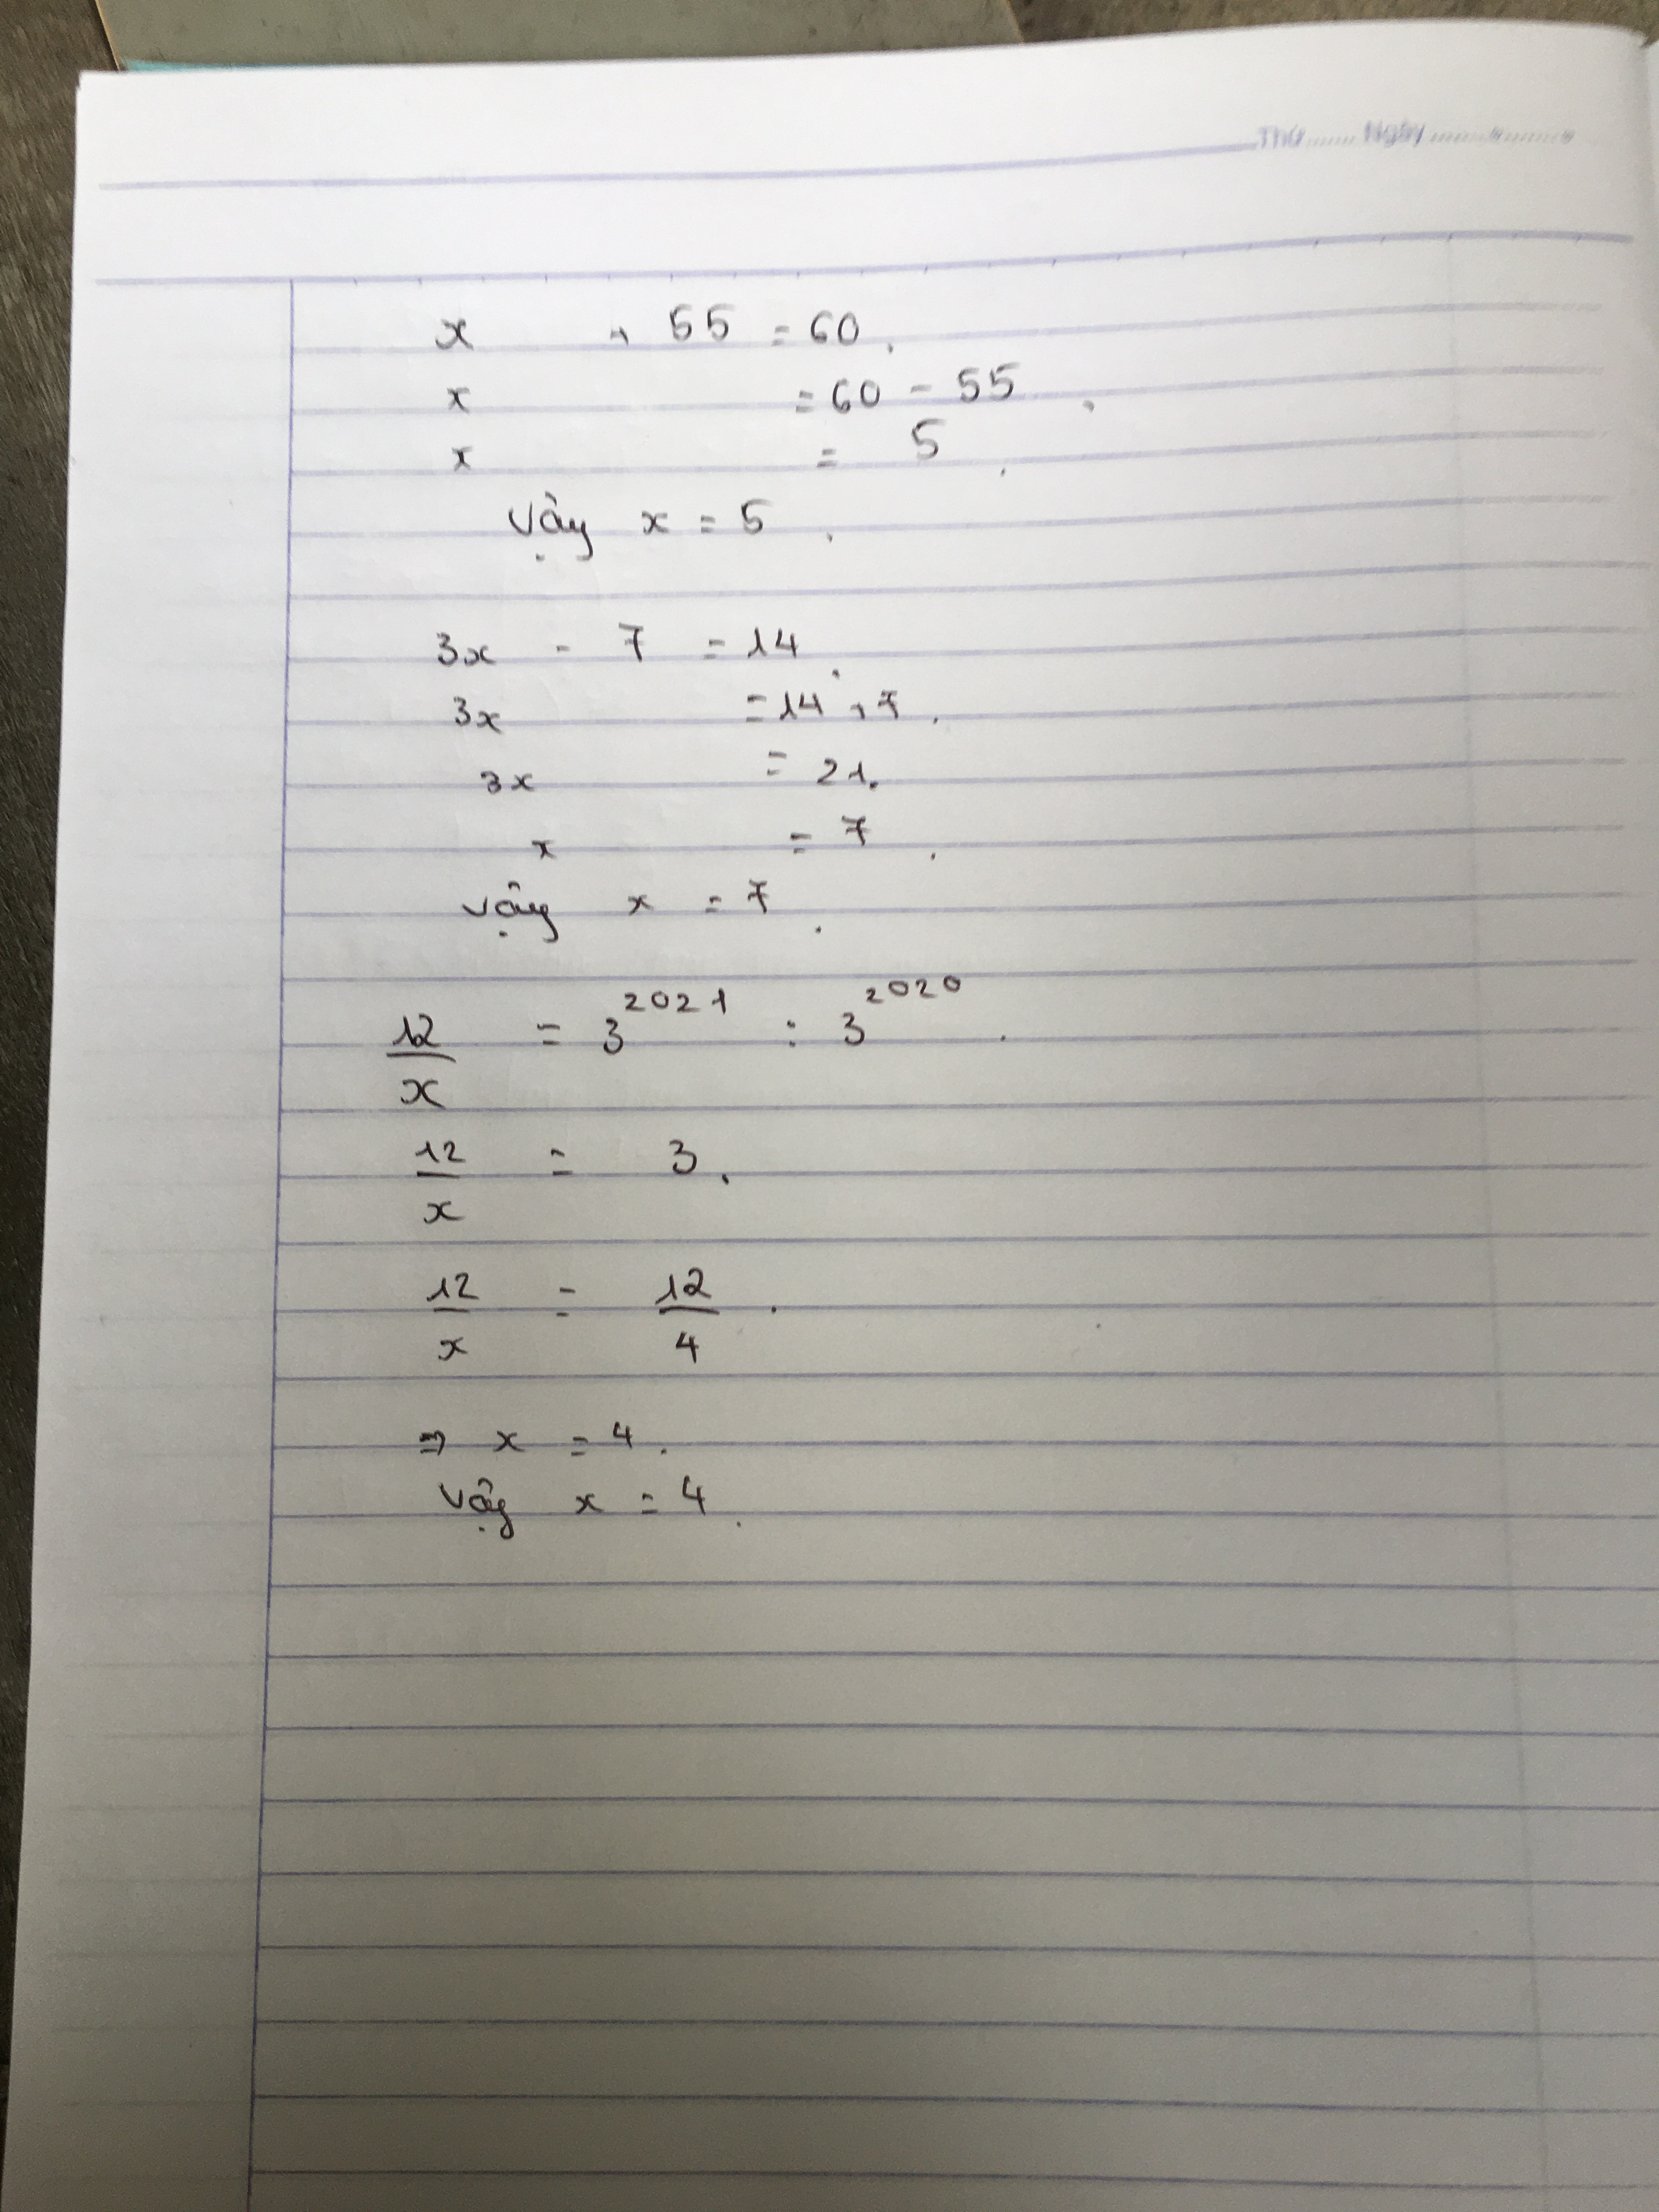 Thứ ...... Ngày ............
x + 55 = 60.
x = 60 - 55.
x = 5.
Vậy x = 5.
3x - 7 = 14.
3x = 14 + 7.
3x = 21.
x = 7.
Vậy x = 7.
12/x = 3^2021 : 3^2020.
12/x = 3.
12/x = 12/4.
⇒ x = 4.
Vậy x = 4.